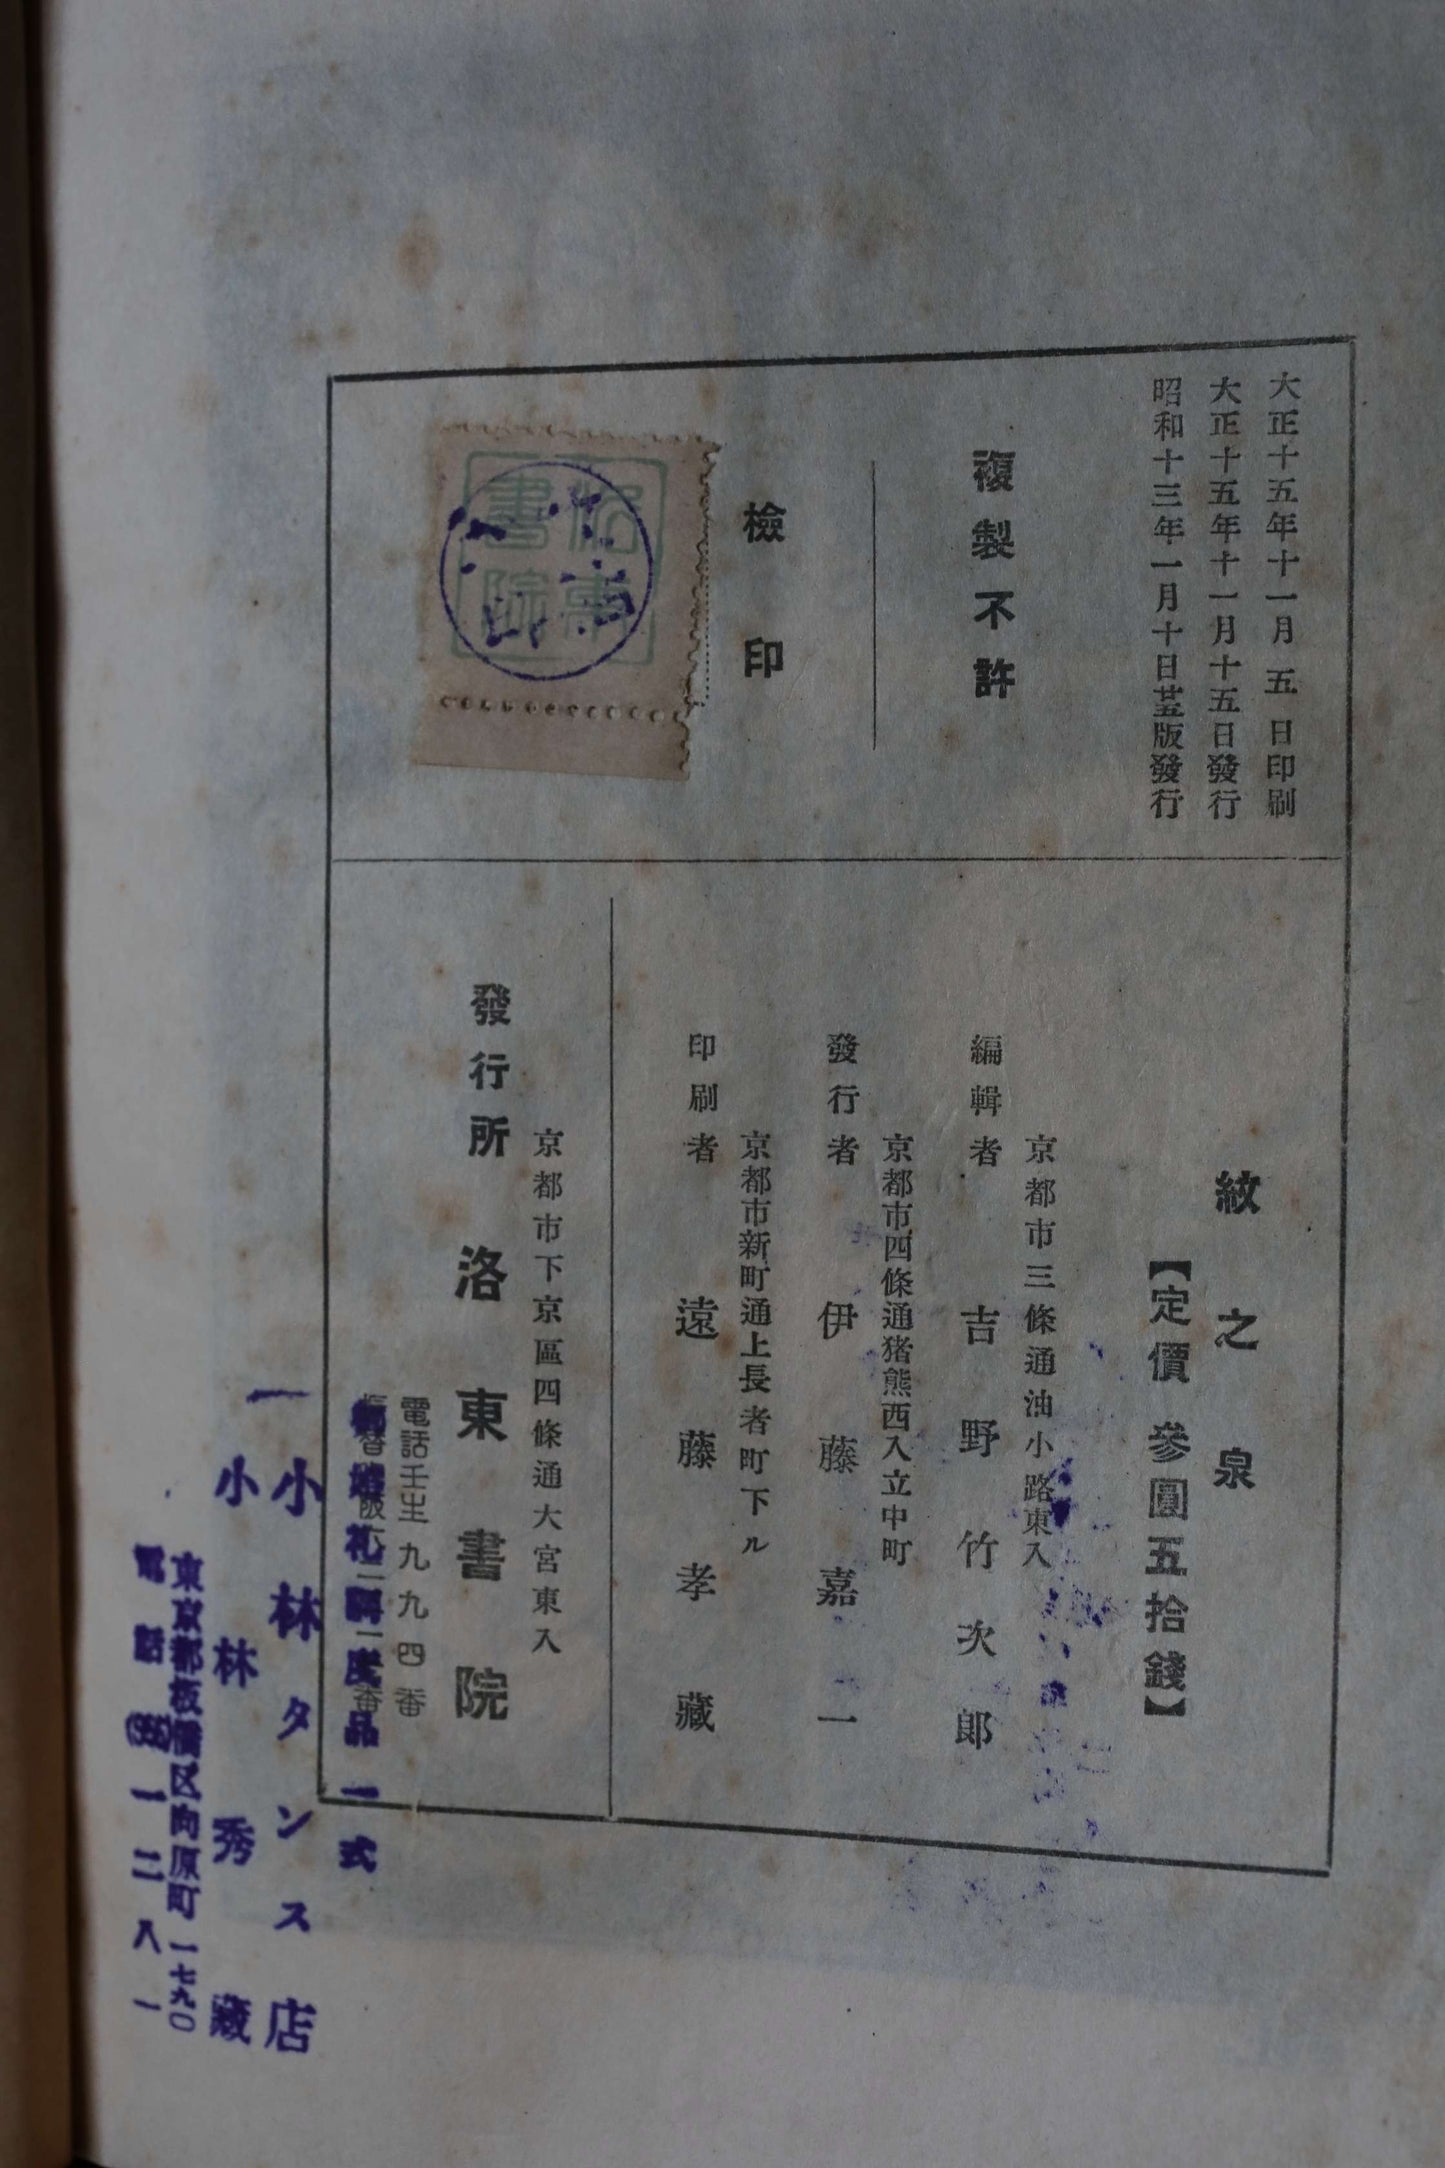 大正十五年十一月五日印刷
大正十五年十一月十五日發行
昭和十三年一月十日廿五版發行
複製不許
檢印
洛東書院
紋之泉
【定價 參圓五拾錢】
京都市三條通油小路東入
編輯者 吉野竹次郎
京都市四條通猪熊西入立中町
發行者 伊藤嘉一
京都市新町通上長者町下ル
印刷者 遠藤孝藏
京都市下京區四條通大宮東入
發行所 洛東書院
電話壬生九九四番
婚礼調度品一式
小林タンス店
小林秀藏
東京都板橋区向原町一七九〇
電話 一二八一